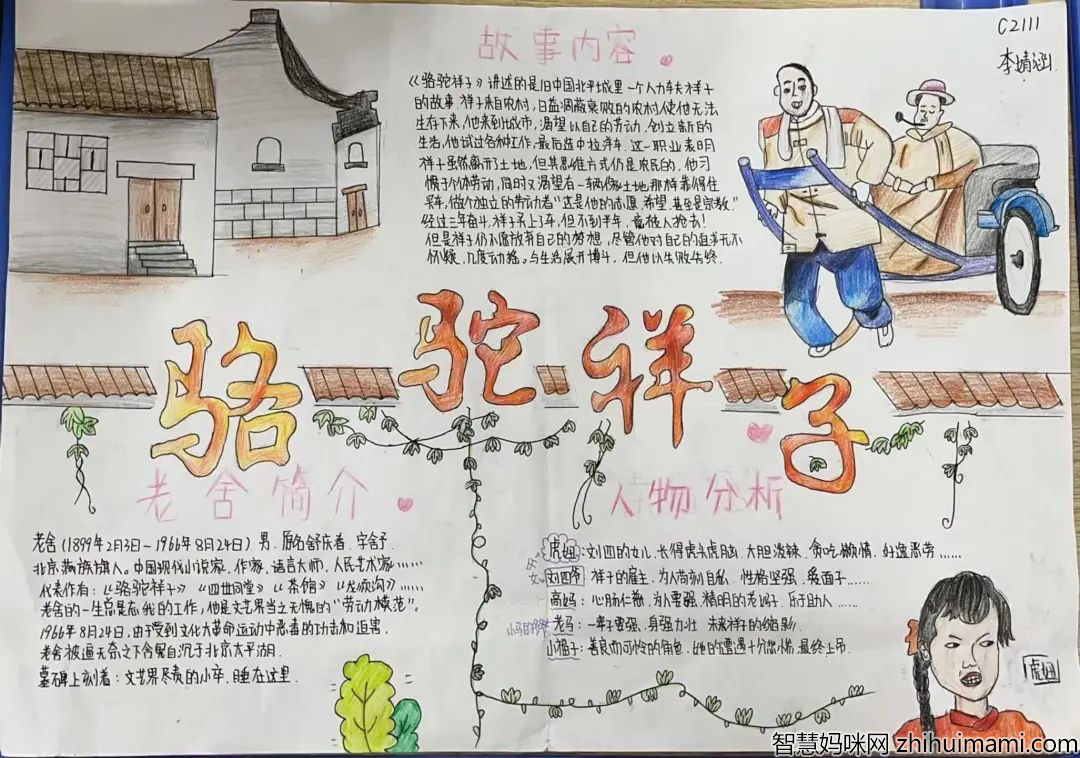 故事内容
C2111
李婧涵
《骆驼祥子》讲述的是旧中国北平城里一个人力车夫祥子
的故事.祥子来自农村,日益凋蔽衰败的农村使他无法
生存下来,他来到城市,渴望以自己的劳动,创立新的
生活,他试过各种工作,最后选中拉洋车.这一职业表明
祥子虽然离开了土地,但其思维方式仍是农民的,他习
惯于个体劳动,同时又渴望有一辆像土地那样靠得住
买车,做个独立的劳动者"这是他的志愿、希望,甚至是宗教."
经过三年奋斗,祥子买上了车,但不到半年,竟被人抢去!
但是祥子仍不愿放弃自己的梦想,尽管他对自己的追求无不
怀疑,几度动摇。与生活展开搏斗,但他以失败告终.
骆驼祥子
老舍简介
老舍(1899年2月3日-1966年8月24日)男.原名舒庆春,字舍予.
北京满族旗人。中国现代小说家.作家.语言大师.人民艺术家……
代表作有:《骆驼祥子》《四世同堂》《茶馆》《龙须沟》……
老舍的一生总是忘我的工作,他是文艺界当之无愧的"劳动模范"。
1966年8月24日,由于受到文化大革命运动中恶毒的攻击和迫害,
老舍被逼无奈之下含冤自沉于北京太平湖.
墓碑上刻着:文艺界尽责的小卒,睡在这里.
人物分析
虎妞:刘四的女儿,长得虎头虎脑,大胆泼辣,贪吃懒惰,好逸恶劳……
父女
刘四爷 祥子的雇主,为人苛刻自私,性格坚强,爱面子……
高妈:心肠仁慈,为人要强,精明的老妈子,乐于助人……
小马的爷爷 老马:一辈子要强,身强力壮 未来祥子的缩影.
小福子:善良而可怜的角色,她的遭遇十分悲惨,最终上吊.
虎妞
智慧妈咪网 zhihuimami.com